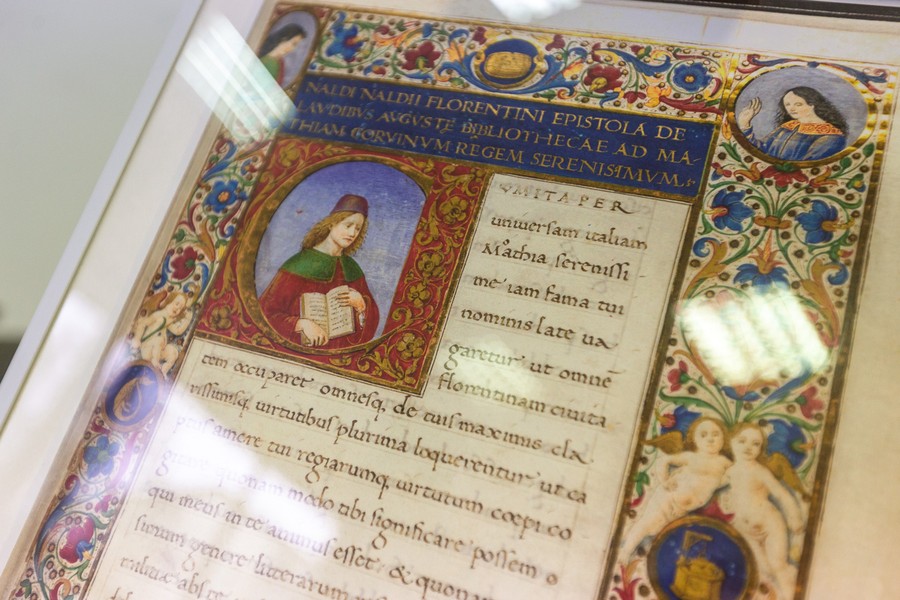 NALDI NALDII FLORENTINI EPISTOLA DE
LAVDIBVS AVGVSTE BIBLIOTHECAE AD MA-
THIAM CORVINVM REGEM SERENISIMVM
MITA PER
universam italiam
Mathia serenissi
me iam fama tui
nominis late ua
garetur ut omnē
florentinam ciuita
tem occuparet omnesq, de tuis maximis cla
rissimisq, uirtutibus plurima loquerentur ut ca
amere tui regiarumq, uirtutum coepi co
quonam modo tibi significare possem o
qui meus in te animus esset, & quon
genere litterarum
abs te